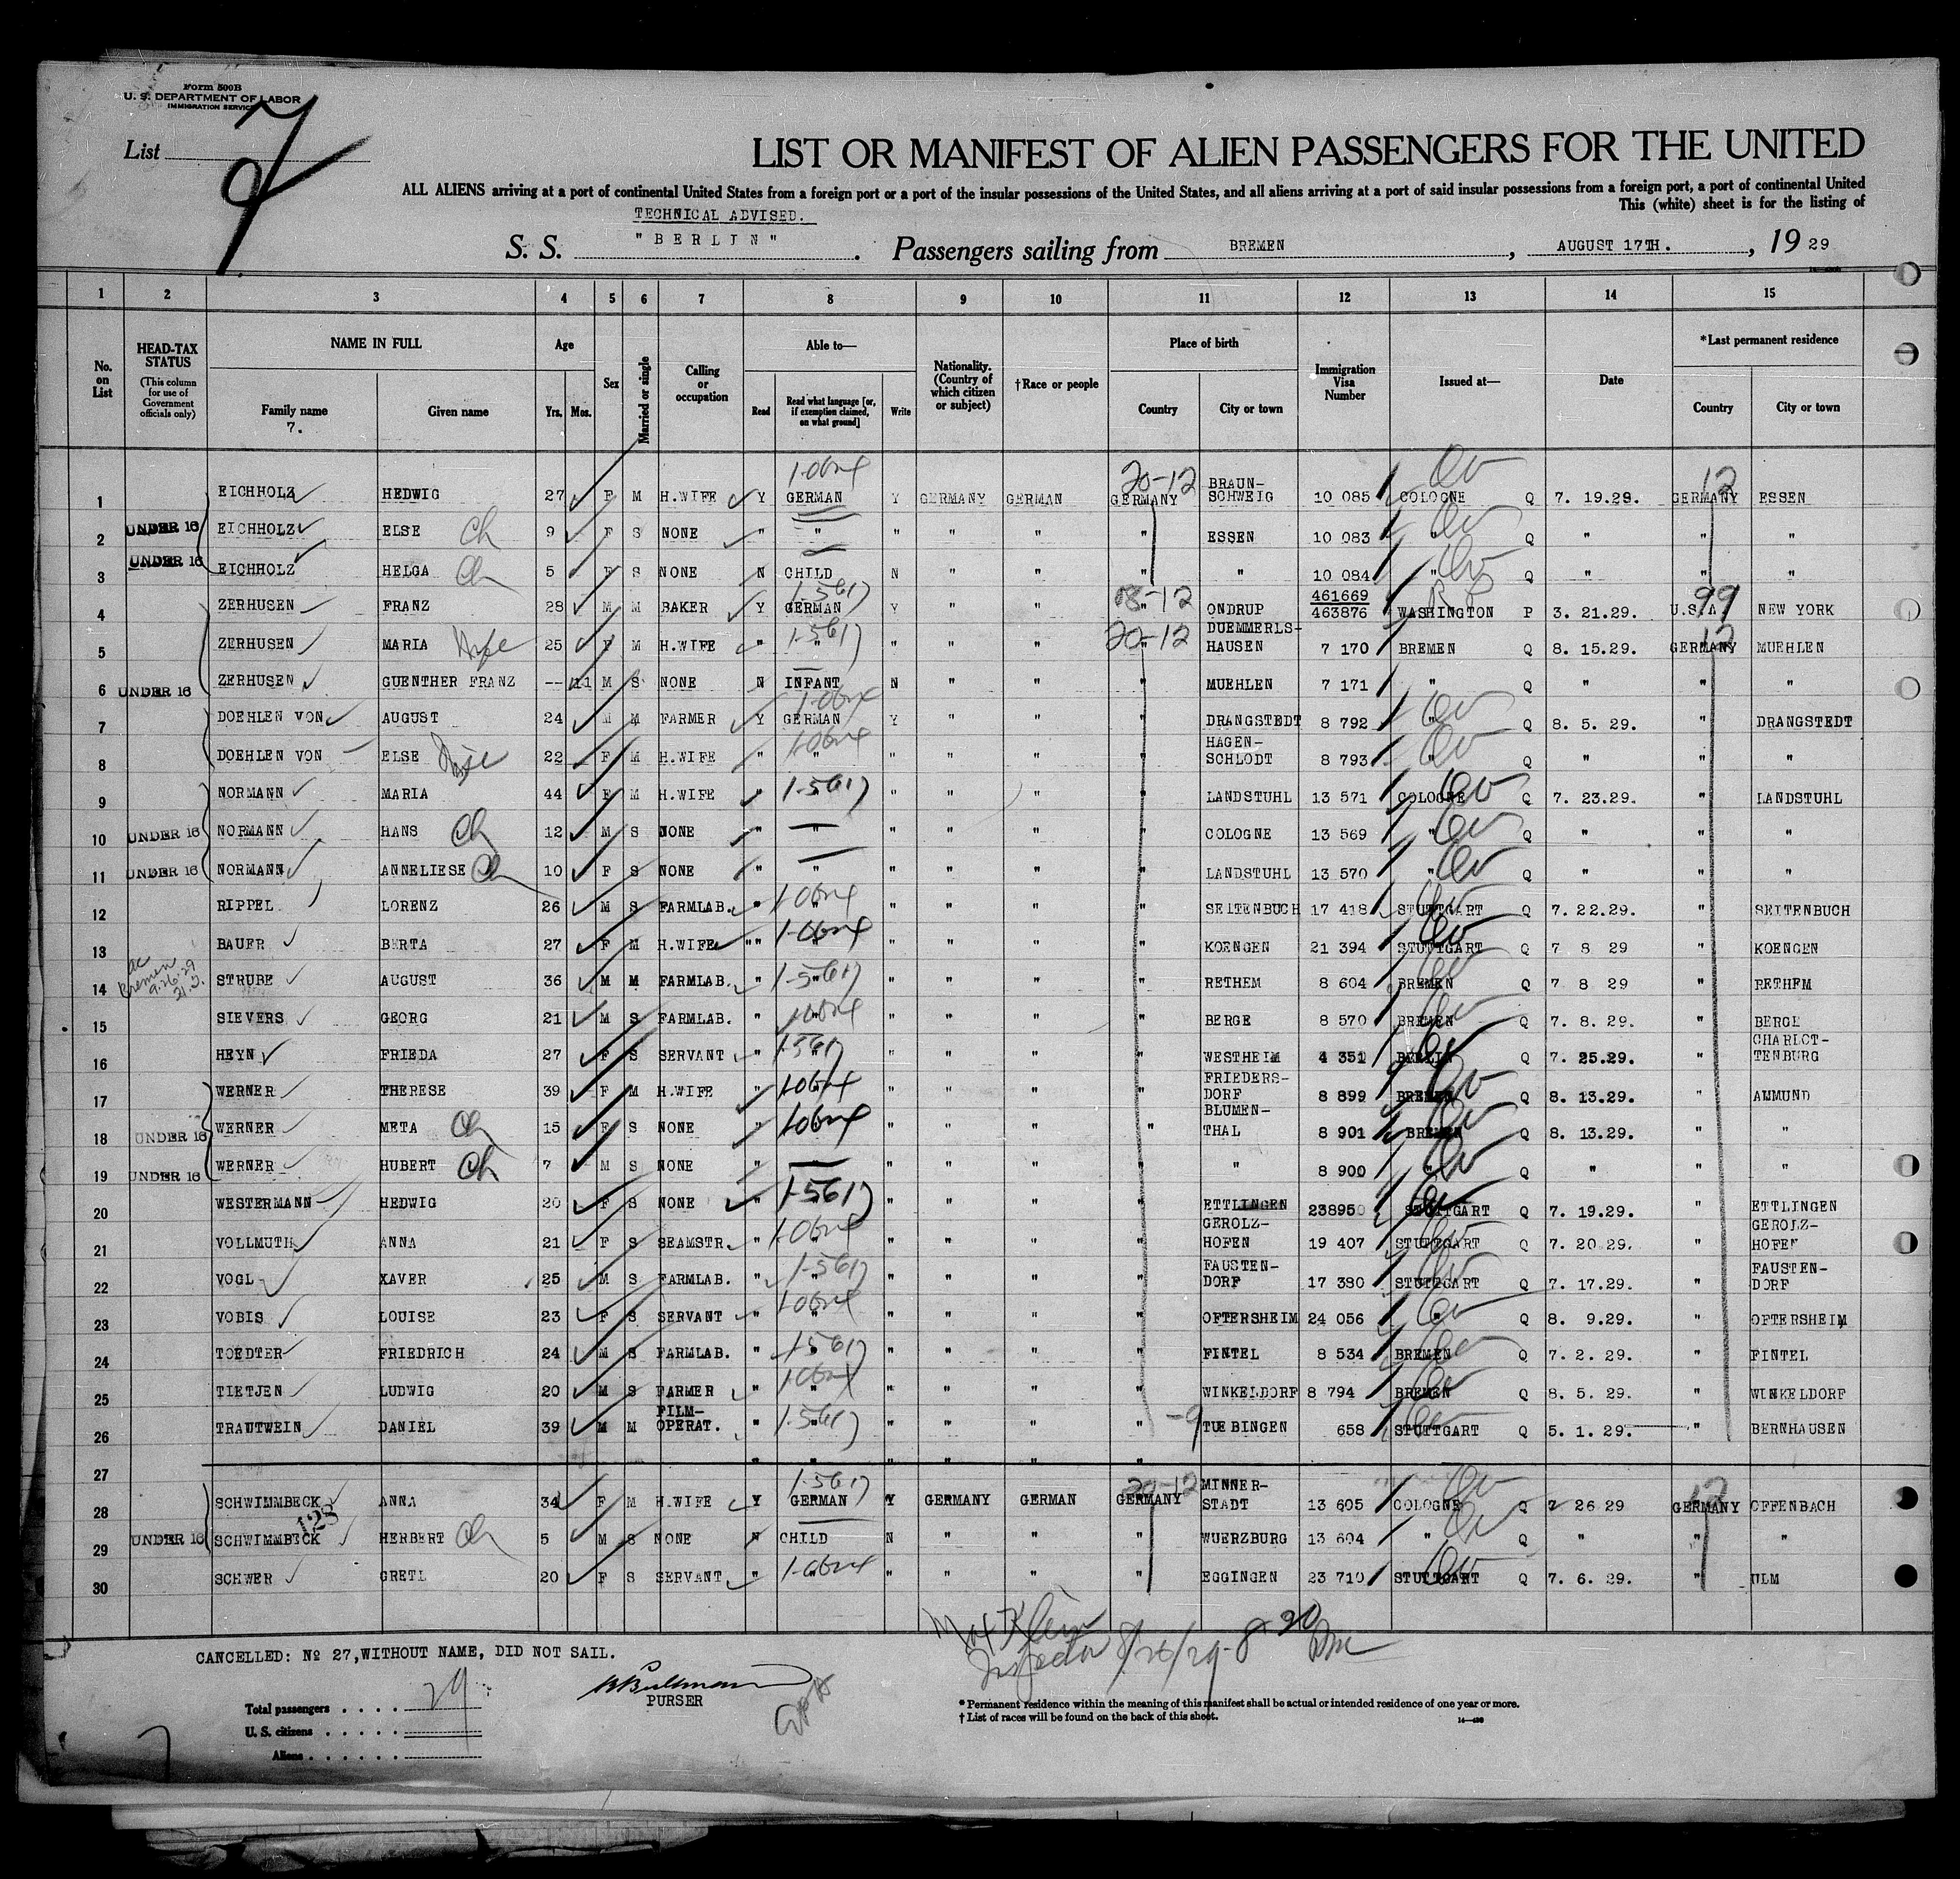 Form 500B
U. S. DEPARTMENT OF LABOR
IMMIGRATION SERVICE
List
LIST OR MANIFEST OF ALIEN PASSENGERS FOR THE UNITED
ALL ALIENS arriving at a port of continental United States from a foreign port or a port of the insular possessions of the United States, and all aliens arriving at a port of said insular possessions from a foreign port, a port of continental United
This (white) sheet is for the listing of
TECHNICAL ADVISED.
S. S. "BERLIN" . Passengers sailing from BREMEN , AUGUST 17TH. , 19 29
1 2 3 4 5 6 7 8 9 10 11 12 13 14 15
No. on List
HEAD-TAX STATUS
(This column for use of Government officials only)
NAME IN FULL
Family name
7.
Given name
Age
Yrs. Mos.
Sex
Married or single
Calling or occupation
Able to—
Read
Read what language [or, if exemption claimed, on what ground]
Write
Nationality. (Country of which citizen or subject)
†Race or people
Place of birth
Country
City or town
Immigration Visa Number
Issued at—
Date
*Last permanent residence
Country
City or town
1 EICHHOLZ HEDWIG 27 F M H.WIFE Y GERMAN Y GERMANY GERMAN 20-12 GERMANY BRAUN-SCHWEIG 10 085 COLOGNE Q 7. 19.29. 12 GERMANY ESSEN
2 UNDER 16 EICHHOLZ ELSE Ch 9 F S NONE " " " " " " ESSEN 10 083 " Q " " "
3 UNDER 16 EICHHOLZ HELGA Ch 5 F S NONE N CHILD N " " " " 10 084 " Q " " "
4 ZERHUSEN FRANZ 28 M M BAKER Y GERMAN Y " " " ONDRUP 461669 463876 WASHINGTON P 3. 21.29. 99 U.S.A. NEW YORK
5 ZERHUSEN MARIA 25 F M H.WIFE " " " " " 20-12 " DUEMMERLS-HAUSEN 7 170 BREMEN Q 8. 15.29. 12 GERMANY MUEHLEN
6 UNDER 16 ZERHUSEN GUENTHER FRANZ -- 11 M S NONE N INFANT N " " " MUEHLEN 7 171 " Q " " "
7 DOEHLEN VON AUGUST 24 M M FARMER Y GERMAN Y " " " DRANGSTEDT 8 792 " Q 8. 5. 29. " DRANGSTEDT
8 DOEHLEN VON ELSE 22 F M H.WIFE " " " " " " HAGEN-SCHLODT 8 793 " Q " " "
9 NORMANN MARIA 44 F M H.WIFE " " " " " " LANDSTUHL 13 571 COLOGNE Q 7. 23.29. " LANDSTUHL
10 UNDER 16 NORMANN HANS Ch 12 M S NONE " " " " " " COLOGNE 13 569 " Q " " "
11 UNDER 16 NORMANN ANNELIESE Ch 10 F S NONE " " " " " " LANDSTUHL 13 570 " Q " " "
12 RIPPEL LORENZ 26 M S FARMLAB. " " " " " " SEITENBUCH 17 418 STUTTGART Q 7. 22.29. " SEITENBUCH
13 BAUER BERTA 27 F M H.WIFE " " " " " " KOENGEN 21 394 STUTTGART Q 7 8 29 " KOENGEN
14 STRUBE AUGUST 36 M M FARMLAB. " " " " " " RETHEM 8 604 BREMEN Q 7 8 29 " RETHEM
15 SIEVERS GEORG 21 M S FARMLAB. " " " " " " BERGE 8 570 BREMEN Q 7. 8. 29. " BERGE
16 HEYN FRIEDA 27 F S SERVANT " " " " " " WESTHEIM 4 351 BERLIN Q 7. 25.29. " CHARLOT-TENBURG
17 WERNER THERESE 39 F M H.WIFE " " " " " " FRIEDERS-DORF 8 899 BREMEN Q 8. 13.29. " AMMUND
18 UNDER 16 WERNER META Ch 15 F S NONE " " " " " " BLUMEN-THAL 8 901 BREMEN Q 8. 13.29. " "
19 UNDER 16 WERNER HUBERT Ch 7 M S NONE " " " " " " " 8 900 " Q " " "
20 WESTERMANN HEDWIG 20 F S NONE " " " " " " ETTLINGEN 238950 STUTTGART Q 7. 19.29. " ETTLINGEN
21 VOLLMUTH ANNA 21 F S SEAMSTR. " " " " " " GEROLZ-HOFEN 19 407 STUTTGART Q 7. 20 29. " GEROLZ-HOFEN
22 VOGL XAVER 25 M S FARMLAB. " " " " " " FAUSTEN-DORF 17 380 STUTTGART Q 7. 17.29. " FAUSTEN-DORF
23 VOBIS LOUISE 23 F S SERVANT " " " " " " OFTERSHEIM 24 056 " Q 8. 9.29. " OFTERSHEIM
24 TOEDTER FRIEDRICH 24 M S FARMLAB. " " " " " " FINTEL 8 534 BREMEN Q 7. 2. 29. " FINTEL
25 TIETJEN LUDWIG 20 M S FARMER " " " " " " WINKELDORF 8 794 BREMEN Q 8. 5. 29. " WINKELDORF
26 TRAUTWEIN DANIEL 39 M M FILM-OPERAT. " " " " " -9 TUEBINGEN 658 STUTTGART Q 5. 1. 29. " BERNHAUSEN
27
28 SCHWIMMBECK ANNA 34 F M H.WIFE Y GERMAN Y GERMANY GERMAN 20-12 GERMANY MINNER-STADT 13 605 COLOGNE Q 7 26 29 12 GERMANY OFFENBACH
128
29 UNDER 16 SCHWIMMBECK HERBERT Ch 5 M S NONE N CHILD N " " " WUERZBURG 13 604 " Q " " "
30 SCHWER GRETL 20 F S SERVANT " " " " " " EGGINGEN 23 710 STUTTGART Q 7. 6. 29. " ULM
Max Klein
Inspector 8/26/29
CANCELLED: No 27,WITHOUT NAME, DID NOT SAIL.
PURSER
Total passengers . . . . 29
U. S. citizens . . . . . .
Aliens . . . . . .
* Permanent residence within the meaning of this manifest shall be actual or intended residence of one year or more.
† List of races will be found on the back of this sheet.